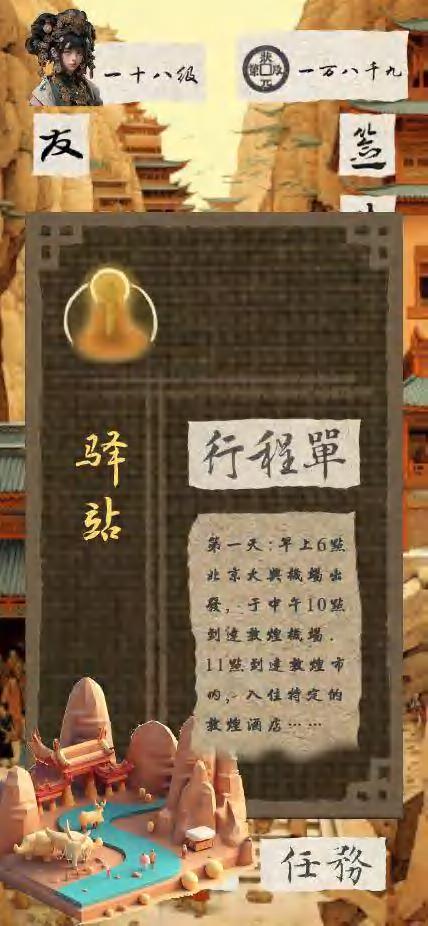 一十八级
状元及第
一万八千九
友
签
驿站
行程單
第一天:早上6點
北京大興機場出
發,于中午10點
到達敦煌機場.
11點到達敦煌市
內,入住特定的
敦煌酒店……
任務